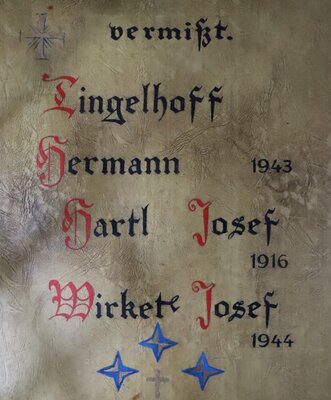 vermißt.
Tingelhoff
Hermann 1943
Hartl Josef
1916
Wirkete Josef
1944